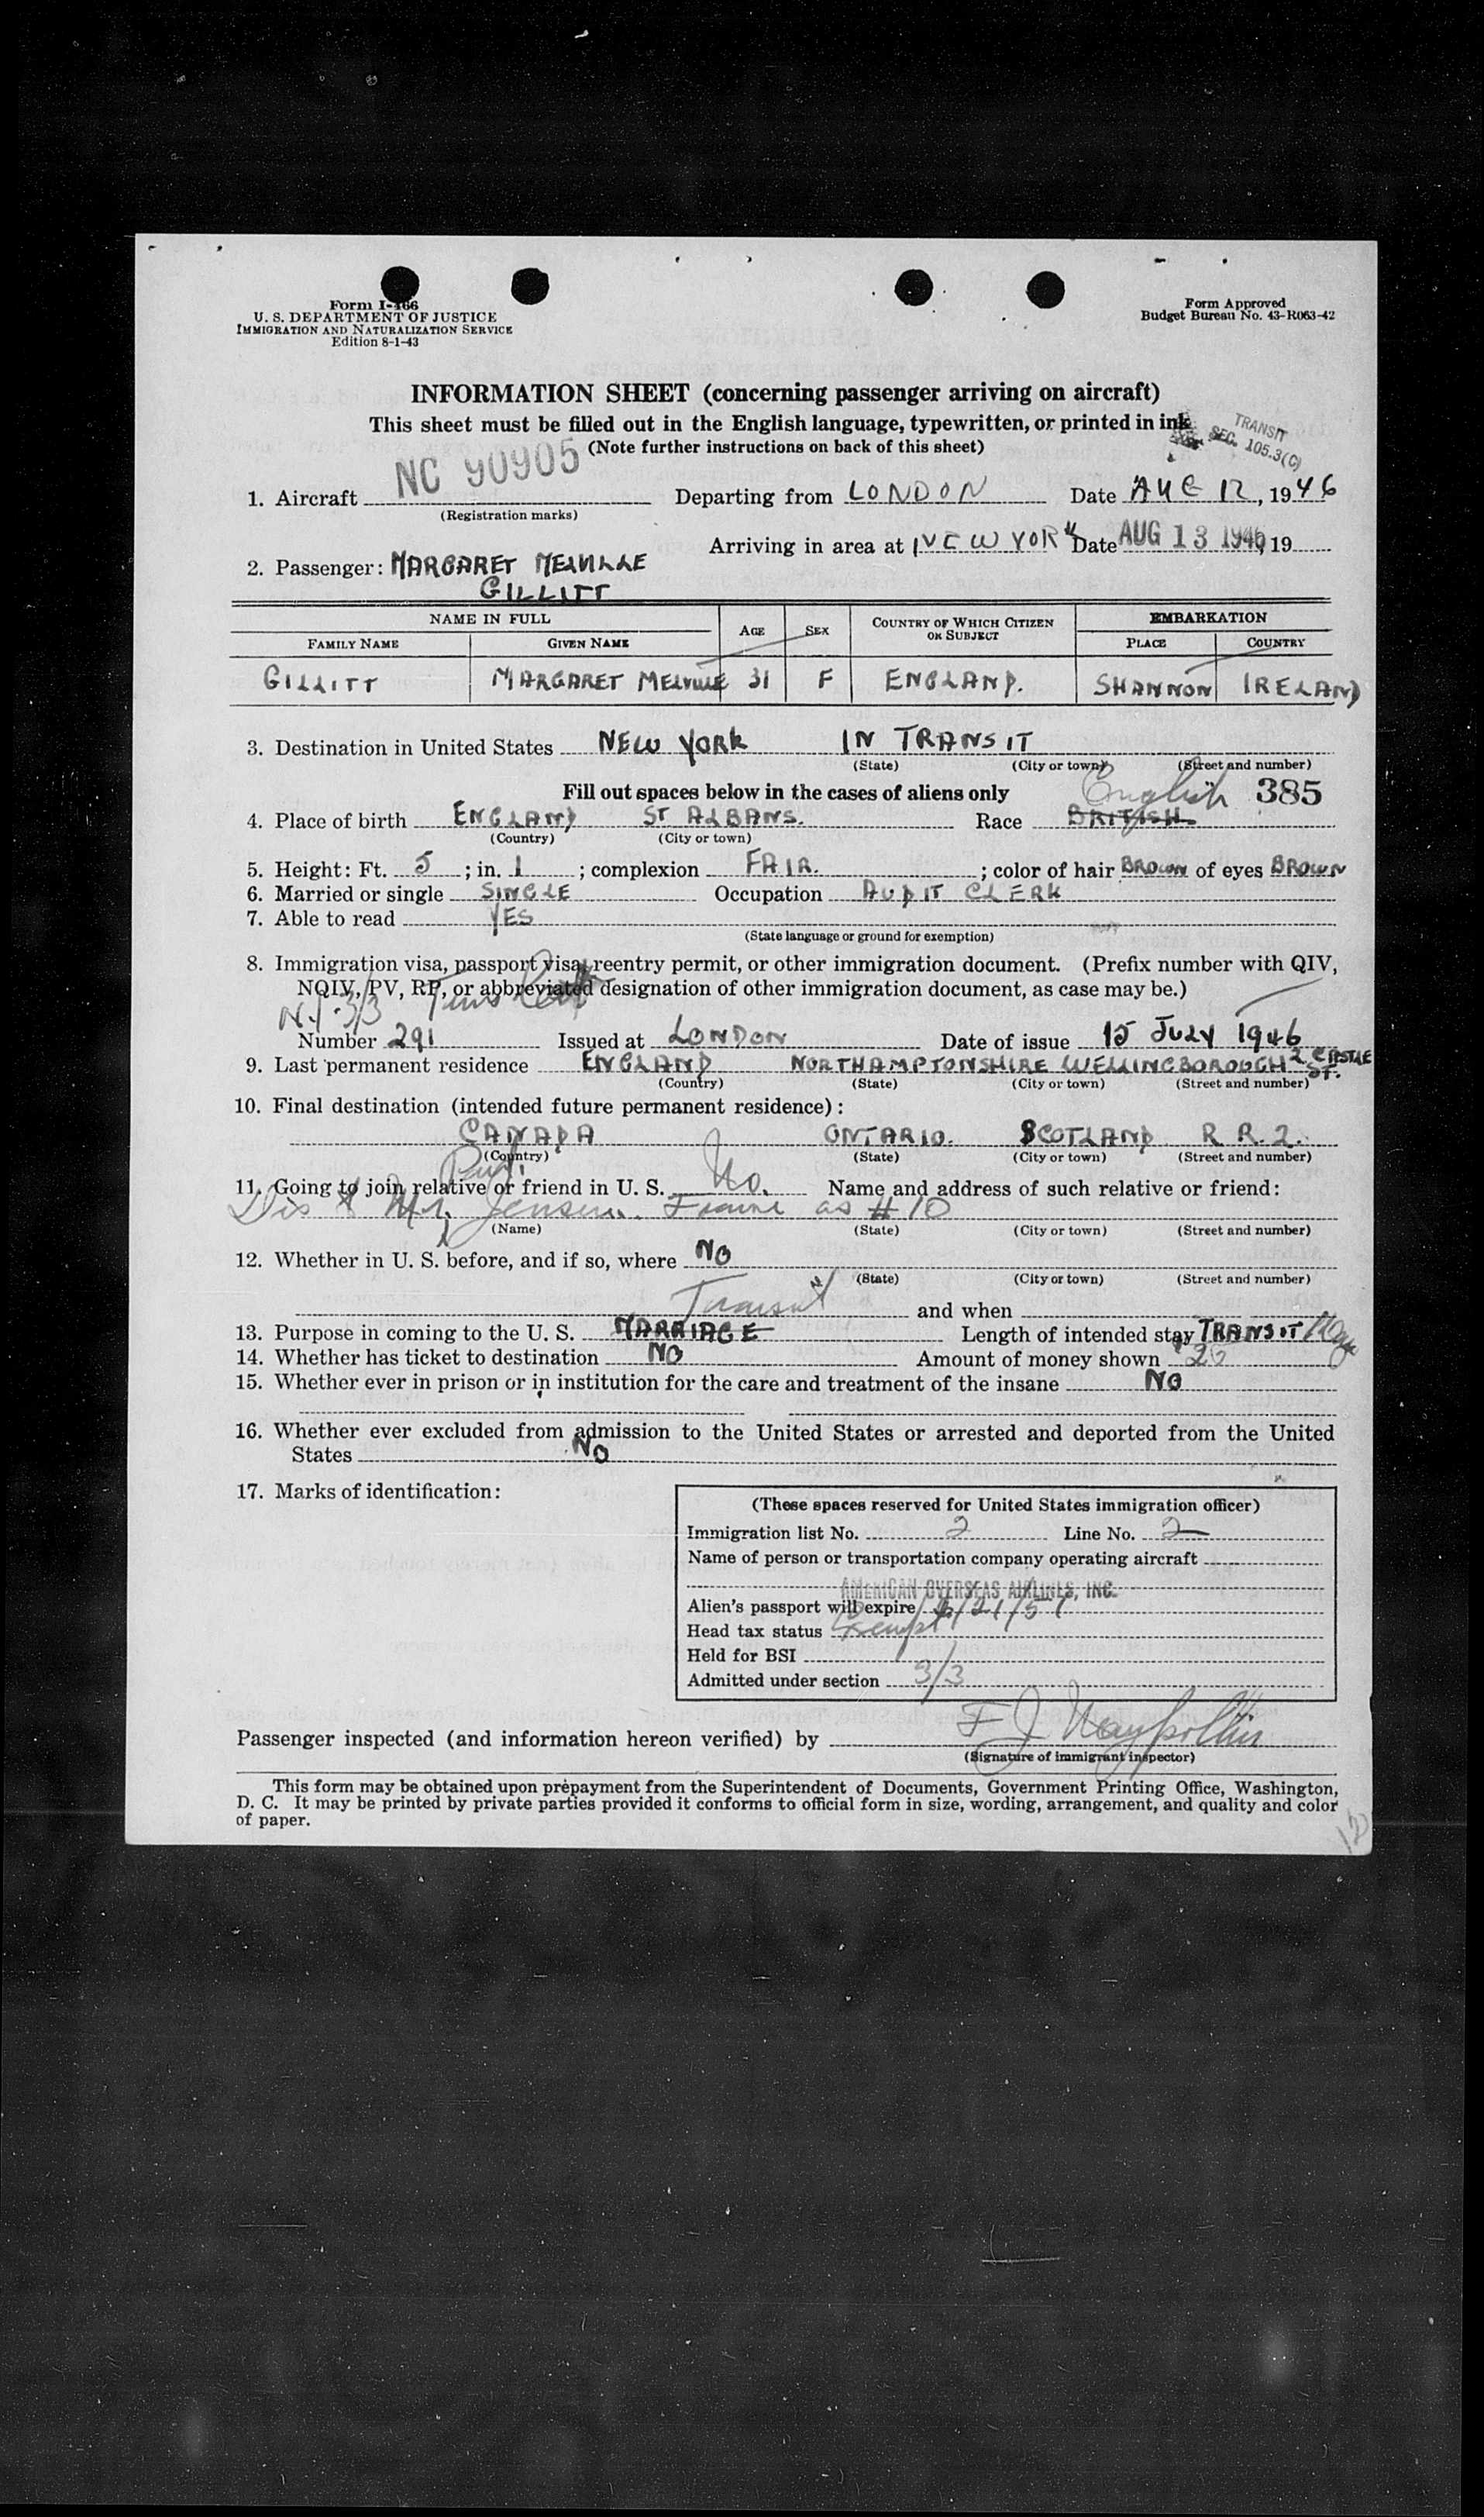 Form I-466
U. S. DEPARTMENT OF JUSTICE
IMMIGRATION AND NATURALIZATION SERVICE
Edition 8-1-43
Form Approved
Budget Bureau No. 43-R063-42
INFORMATION SHEET (concerning passenger arriving on aircraft)
This sheet must be filled out in the English language, typewritten, or printed in ink
(Note further instructions on back of this sheet)
TRANSIT
SEC. 105.3(C)
1. Aircraft NC 90905 Departing from LONDON Date AUG 12, 1946
(Registration marks)
Arriving in area at NEW YORK Date AUG 13 1946, 19
2. Passenger: MARGARET MELVILLE
GILLITT
NAME IN FULL AGE SEX COUNTRY OF WHICH CITIZEN OR SUBJECT EMBARKATION
FAMILY NAME GIVEN NAME PLACE COUNTRY
GILLITT MARGARET MELVILLE 31 F ENGLAND. SHANNON IRELAND
3. Destination in United States NEW YORK IN TRANSIT
(State) (City or town) (Street and number)
Fill out spaces below in the cases of aliens only English 385
4. Place of birth ENGLAND ST ALBANS. Race BRITISH
(Country) (City or town)
5. Height: Ft. 5; in. 1; complexion FAIR.; color of hair BROWN of eyes BROWN
6. Married or single SINGLE Occupation AUDIT CLERK
7. Able to read YES
(State language or ground for exemption)
8. Immigration visa, passport visa, reentry permit, or other immigration document. (Prefix number with QIV,
NQIV, PV, RP, or abbreviated designation of other immigration document, as case may be.)
3/3
Number 291 Issued at LONDON Date of issue 15 JULY 1946
9. Last permanent residence ENGLAND NORTHAMPTONSHIRE WELLINGBOROUGH 2 CASTLE ST.
(Country) (State) (City or town) (Street and number)
10. Final destination (intended future permanent residence):
CANADA ONTARIO. SCOTLAND R R. 2.
(Country) (State) (City or town) (Street and number)
11. Going to join relative or friend in U. S. No. Name and address of such relative or friend:
Mr. Jensen as # 10
(Name) (State) (City or town) (Street and number)
12. Whether in U. S. before, and if so, where NO
(State) (City or town) (Street and number)
Transit and when
13. Purpose in coming to the U. S. MARRIAGE Length of intended stay TRANSIT
14. Whether has ticket to destination NO Amount of money shown 20
15. Whether ever in prison or in institution for the care and treatment of the insane NO
16. Whether ever excluded from admission to the United States or arrested and deported from the United
States NO
17. Marks of identification:
(These spaces reserved for United States immigration officer)
Immigration list No. 2 Line No. 2
Name of person or transportation company operating aircraft
AMERICAN OVERSEAS AIRLINES, INC.
Alien's passport will expire /21/51
Head tax status Exempt
Held for BSI
Admitted under section 3/3
Passenger inspected (and information hereon verified) by F J
(Signature of immigrant inspector)
This form may be obtained upon prepayment from the Superintendent of Documents, Government Printing Office, Washington,
D. C. It may be printed by private parties provided it conforms to official form in size, wording, arrangement, and quality and color
of paper.